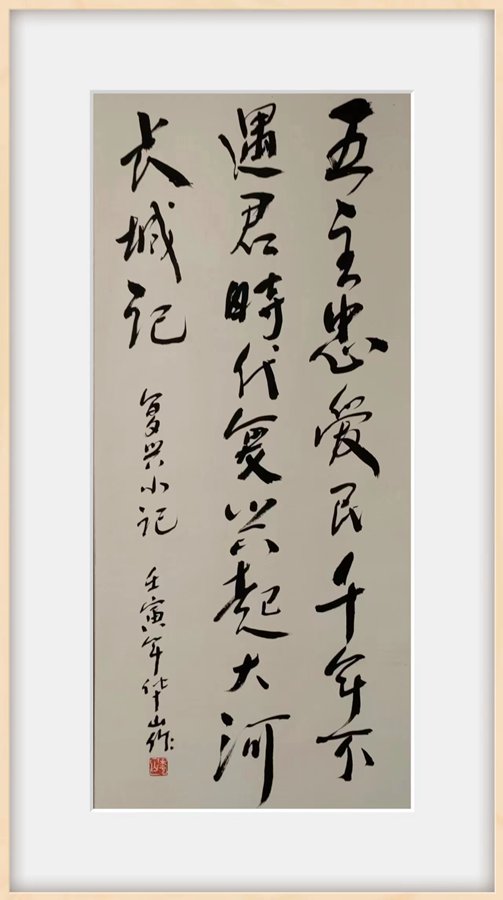 五主忠爱民千年不
遇君時代复兴起大河
长城记
复兴小记
壬寅年华山作